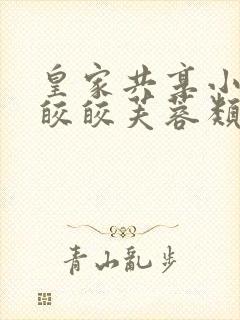 皇家共享小
皎皎芙蓉类
青山乱步